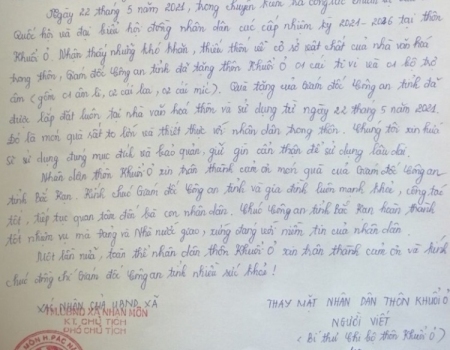 Ngày 22 tháng 5 năm 2021, trong chuyến kiểm tra công tác chuẩn bị
Quốc hội và đại biểu hội đồng nhân dân các cấp nhiệm kỳ 2021-2026 tại thôn
Khuổi Ỏ. Nhận thấy những khó khăn, thiếu thốn về cơ sở vật chất của nhà văn hoá
trong thôn, Giám đốc Công an tỉnh đã tặng thôn Khuổi Ỏ 01 cái ti vi và 01 bộ tăng
âm (gồm 01 âm li, 02 cái loa, 02 cái mic). Quà tặng của Giám đốc Công an tỉnh đã
được lắp đặt luôn tại nhà văn hoá thôn và sử dụng từ ngày 22 tháng 5 năm 2021.
Đó là món quà rất to lớn và thiết thực với nhân dân trong thôn. Chúng tôi xin hứa
sẽ sử dụng đúng mục đích và bảo quản, giữ gìn cẩn thận để sử dụng lâu dài.
Nhân dân thôn Khuổi Ỏ xin trân thành cảm ơn món quà của Giám đốc Công an
tỉnh Bắc Kạn. Kính chúc Giám đốc Công an tỉnh và gia đình luôn mạnh khoẻ, công tác
tốt, tiếp tục quan tâm đến bà con nhân dân. Chúc Công an tỉnh Bắc Kạn hoàn thành
tốt nhiệm vụ mà Đảng và Nhà nước giao, xứng đáng với niềm tin của nhân dân.
Một lần nữa, toàn thể nhân dân thôn Khuổi Ỏ xin trân thành cảm ơn và kính
chúc đồng chí Giám đốc Công an tỉnh nhiều sức khoẻ!
XÁC NHẬN CỦA UBND XÃ
TM. UBND XÃ NHẠN MÔN
KT. CHỦ TỊCH
PHÓ CHỦ TỊCH
THAY MẶT NHÂN DÂN THÔN KHUỔI Ỏ
NGƯỜI VIẾT
(Bí thư Chi bộ thôn Khuổi Ỏ)